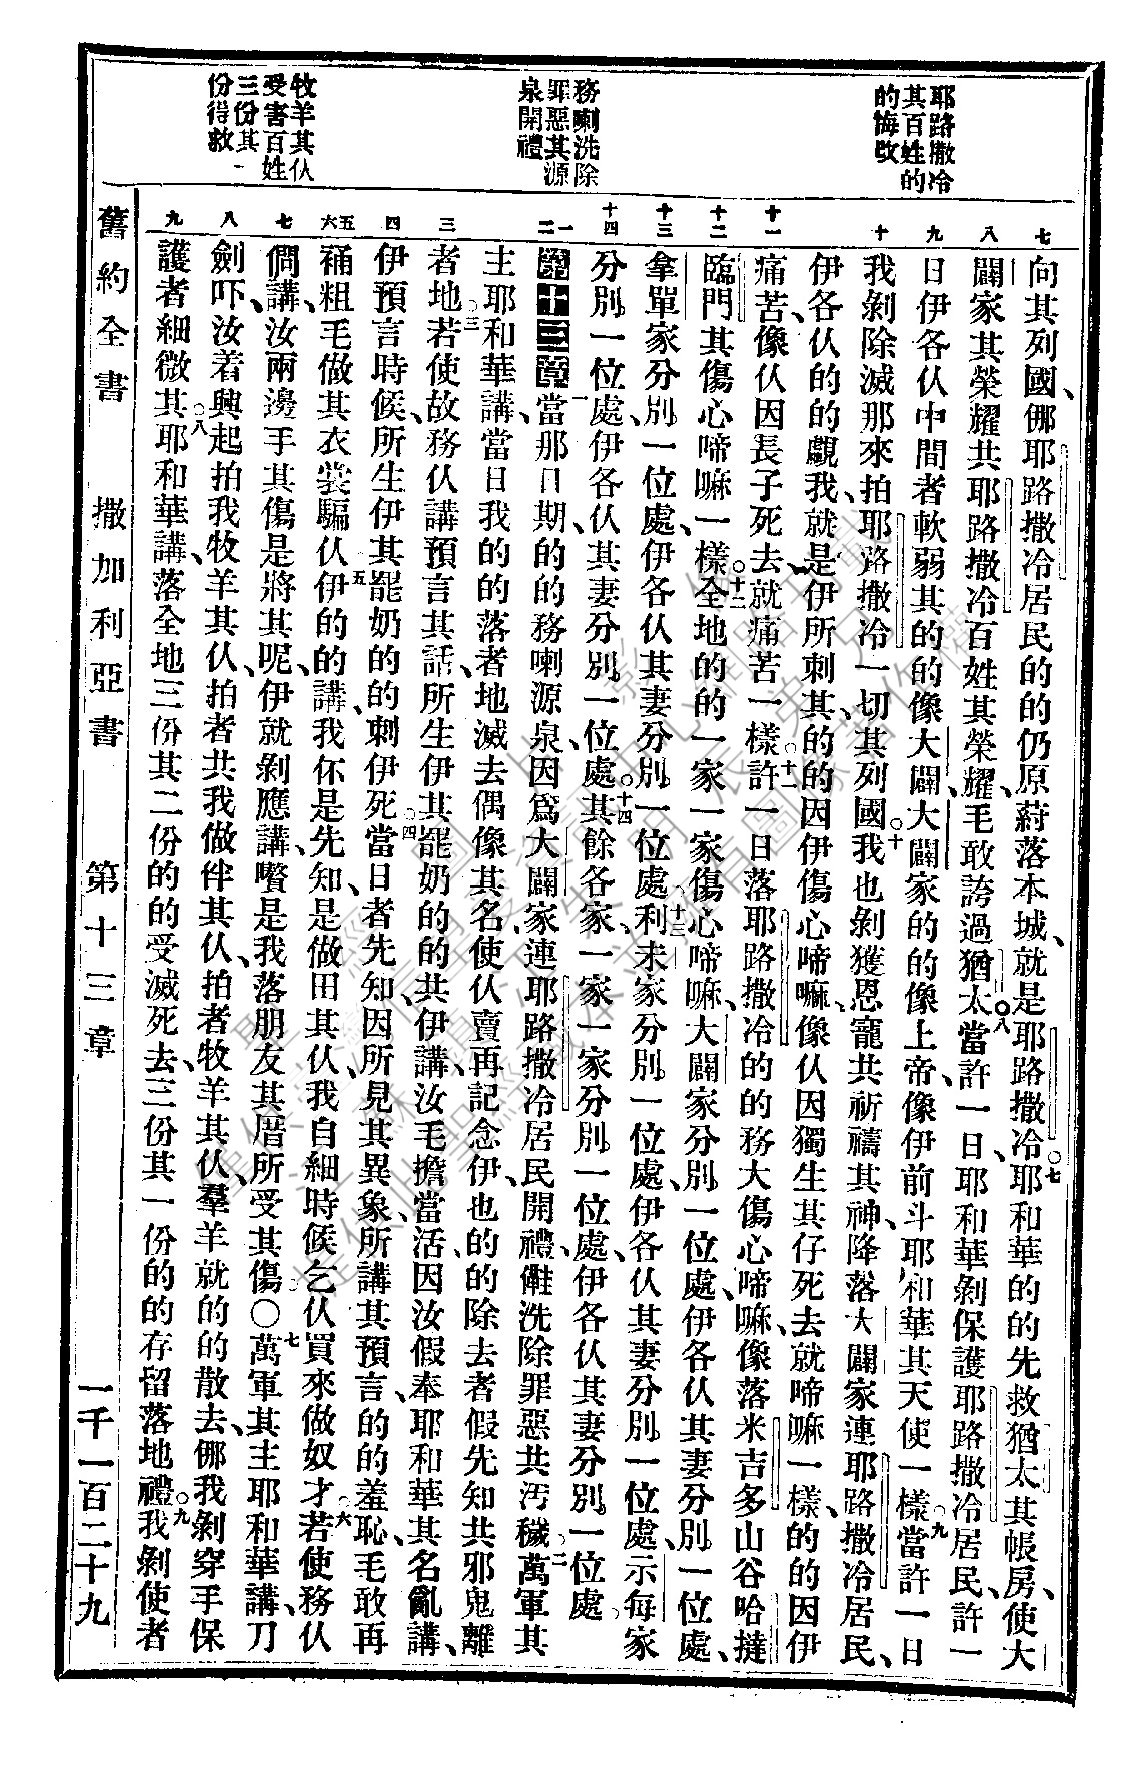 耶路撒冷
其百姓的
的悔改
務喇洗除
罪惡其源
泉開禮
牧羊其仈
受害百姓
三份其一
份得救
七 八 九 十 十一 十二 十三 十四 一 二 三 四 五 六 七 八 九
向其列國、㑚耶路撒冷居民的的仍原蒔落本城、就是耶路撒冷。七耶和華的的先救猶太其帳房、使大
闢家其榮耀共耶路撒冷百姓其榮耀、毛敢誇過猶太。八當許一日、耶和華剝保護耶路撒冷居民、許一
日伊各仈中間者軟弱其的的像大闢、大闢家的的像上帝、像伊前斗耶和華其天使一樣。九當許一日
我剝除滅那來拍耶路撒冷一切其列國。十我也剝獲恩寵共祈禱其神、降落大闢家連耶路撒冷居民、
伊各仈的的覷我、就是伊所刺其、的的因伊傷心啼嘛、像仈因獨生其仔死去、就啼嘛一樣、的的因伊
痛苦、像仈因長子死去、就痛苦一樣。十一許一日落耶路撒冷的的務大傷心啼嘛、像落米吉多山谷哈撻
臨門其傷心啼嘛一樣。十二全地的的一家一家傷心啼嘛、大闢家分別一位處、伊各仈其妻分別一位處、
拿單家分別一位處、伊各仈其妻分別一位處、十三利未家分別一位處、伊各仈其妻分別一位處、示每家
分別一位處、伊各仈其妻分別一位處。十四其餘各家、一家一家分別一位處、伊各仈其妻分別一位處。
第十三章一當那日期、的的務喇源泉、因爲大闢家連耶路撒冷居民開禮、儺洗除罪惡共污穢。二萬軍其
主耶和華講、當日我的的落者地滅去偶像其名、使仈賣再記念伊、也的的除去者假先知共邪鬼離
者地。三若使故務仈講預言其話、所生伊其罷奶的的共伊講、汝毛擔當活、因汝假奉耶和華其名亂講、
伊預言時候、所生伊其罷奶的的刺伊死。四當日者先知、因所見其異象、所講其預言、的的羞恥、毛敢再
𧙕粗毛做其衣裳騙仈、五伊的的講、我伓是先知、是做田其仈、我自細時候乞仈買來做奴才。六若使務仈
僩講、汝兩邊手其傷是將其呢、伊就剝應講、嚽是我落朋友其厝所受其傷。○七萬軍其主耶和華講、刀
劍吓、汝着興起拍我牧羊其仈、拍者共我做伴其仈、拍者牧羊其仈、羣羊就的的散去、㑚我剝穿手保
護者細微其。八耶和華講、落全地三份其二份的的受滅死去、三份其一份的的存留落地禮。九我剝使者
舊約全書 撒加利亞書 第十三章 一千一百二十九